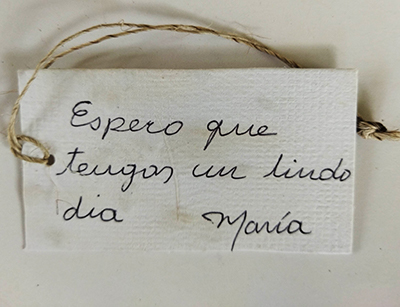 Espero que
tengas un lindo
dia María